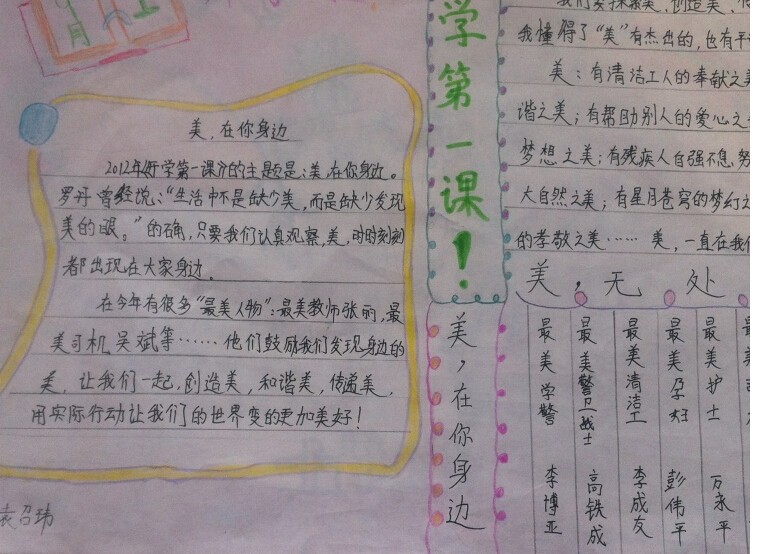 月
美,在你身边
2012年《开学第一课》的主题是:美在你身边。
罗丹曾经说:“生活中不是缺少美,而是缺少发现
美的眼。”的确,只要我们认真观察,美,时时刻刻
都出现在大家身边。
在今年有很多“最美人物”:最美教师张丽,最
美司机吴斌等……他们鼓励我们发现身边的
美,让我们一起,创造美,和谐美,传递美,
用实际行动让我们的世界变的更加美好!
袁召玮
学第一课!
美,在你身边
我们要探找美,创造美,
我懂得了“美”有杰出的,也有平
美:有清洁工人的奉献之美
谐之美;有帮助别人的爱心之
梦想之美;有残疾人自强不息,努
大自然之美;有星月苍穹的梦幻之
的孝敬之美……美,一直在我们
美,无处
最美学警 李博亚
最美警卫战士 高铁成
最美清洁工 李成友
最美孕妇 彭伟平
最美护士 万永平
最美